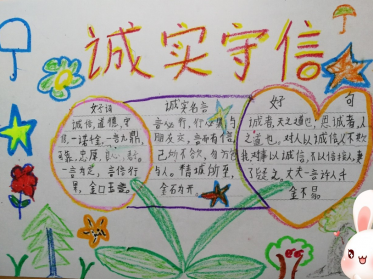 诚实守信
好词
诚信,道德,守
信,一诺千金,一言九鼎,
忠厚,良心,
一言为定,言信行
果,金口玉言。
诚实名言
言必行,行必果与
朋友交,言而有信,
己所不欲,勿施
与人。精诚所至,
金石为开。
好 句
诚者,天之道也,思诚者,人
之道也。对人以诚信,人不欺
我,对事以诚信,事
大夫一言许人千
金不易